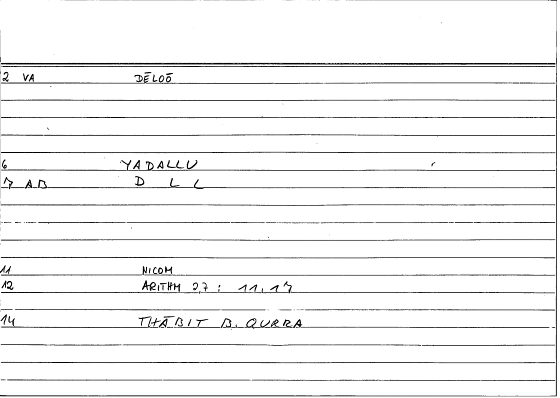 2 VA DĒLOŌ
6 YADALLU
7 AB D L L
11 NICOM
12 ARITHM 27 : 11.17
14 THĀBIT B. QURRA